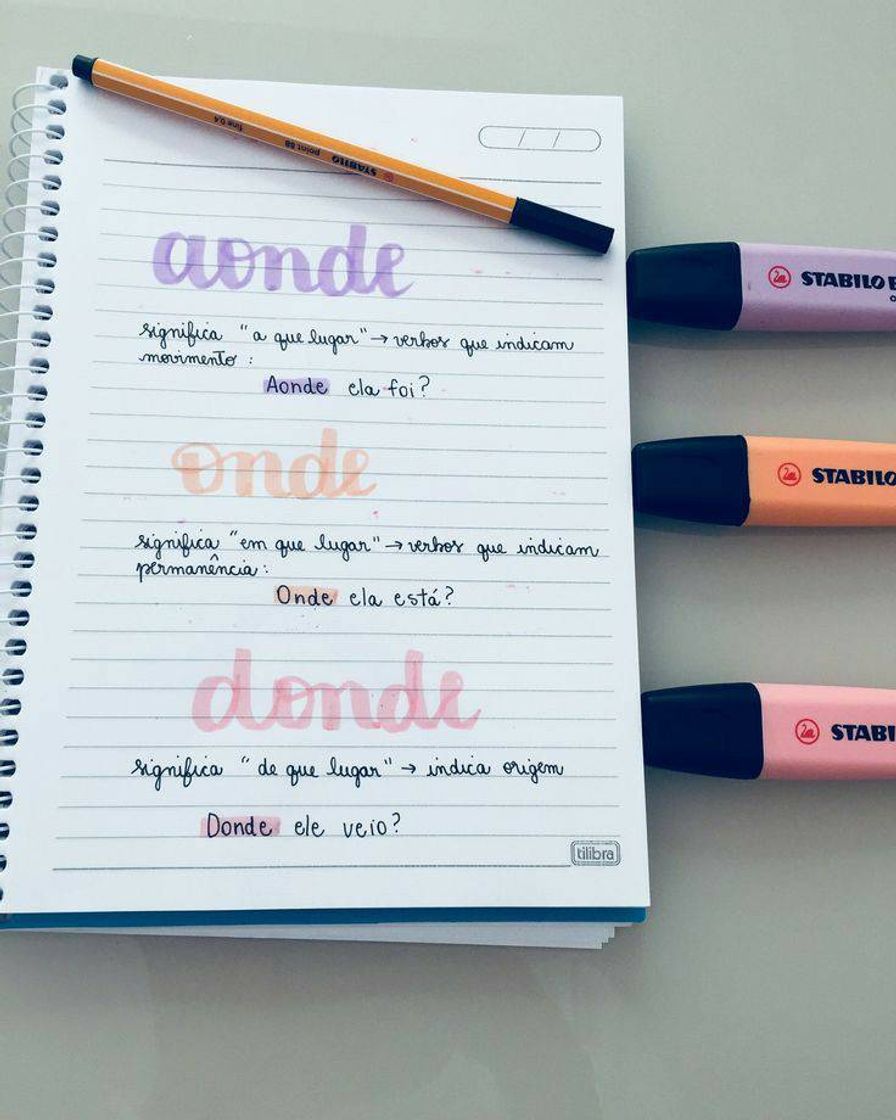 STABILO point 88 fine 0,4
/ /
aonde
significa "a que lugar" → verbos que indicam
movimento :
Aonde ela foi?
onde
significa "em que lugar" → verbos que indicam
permanência :
Onde ela está?
donde
significa "de que lugar" → indica origem
Donde ele veio?
tilibra
STABILO
STABILO
STABI